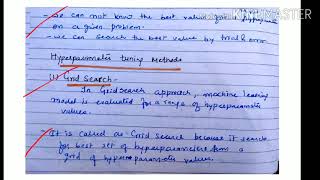 - We can not know the best value for
on a given problem.
- we can search the best value by trial & error
Hyperparameter tuning Methods
(1) Grid Search -
In Grid Search approach, machine learning
model is evaluated for a range of hyperparameter
values.
- It is called as Grid search because it search
for best set of hyperparameters from a
grid of hyperparameter values.